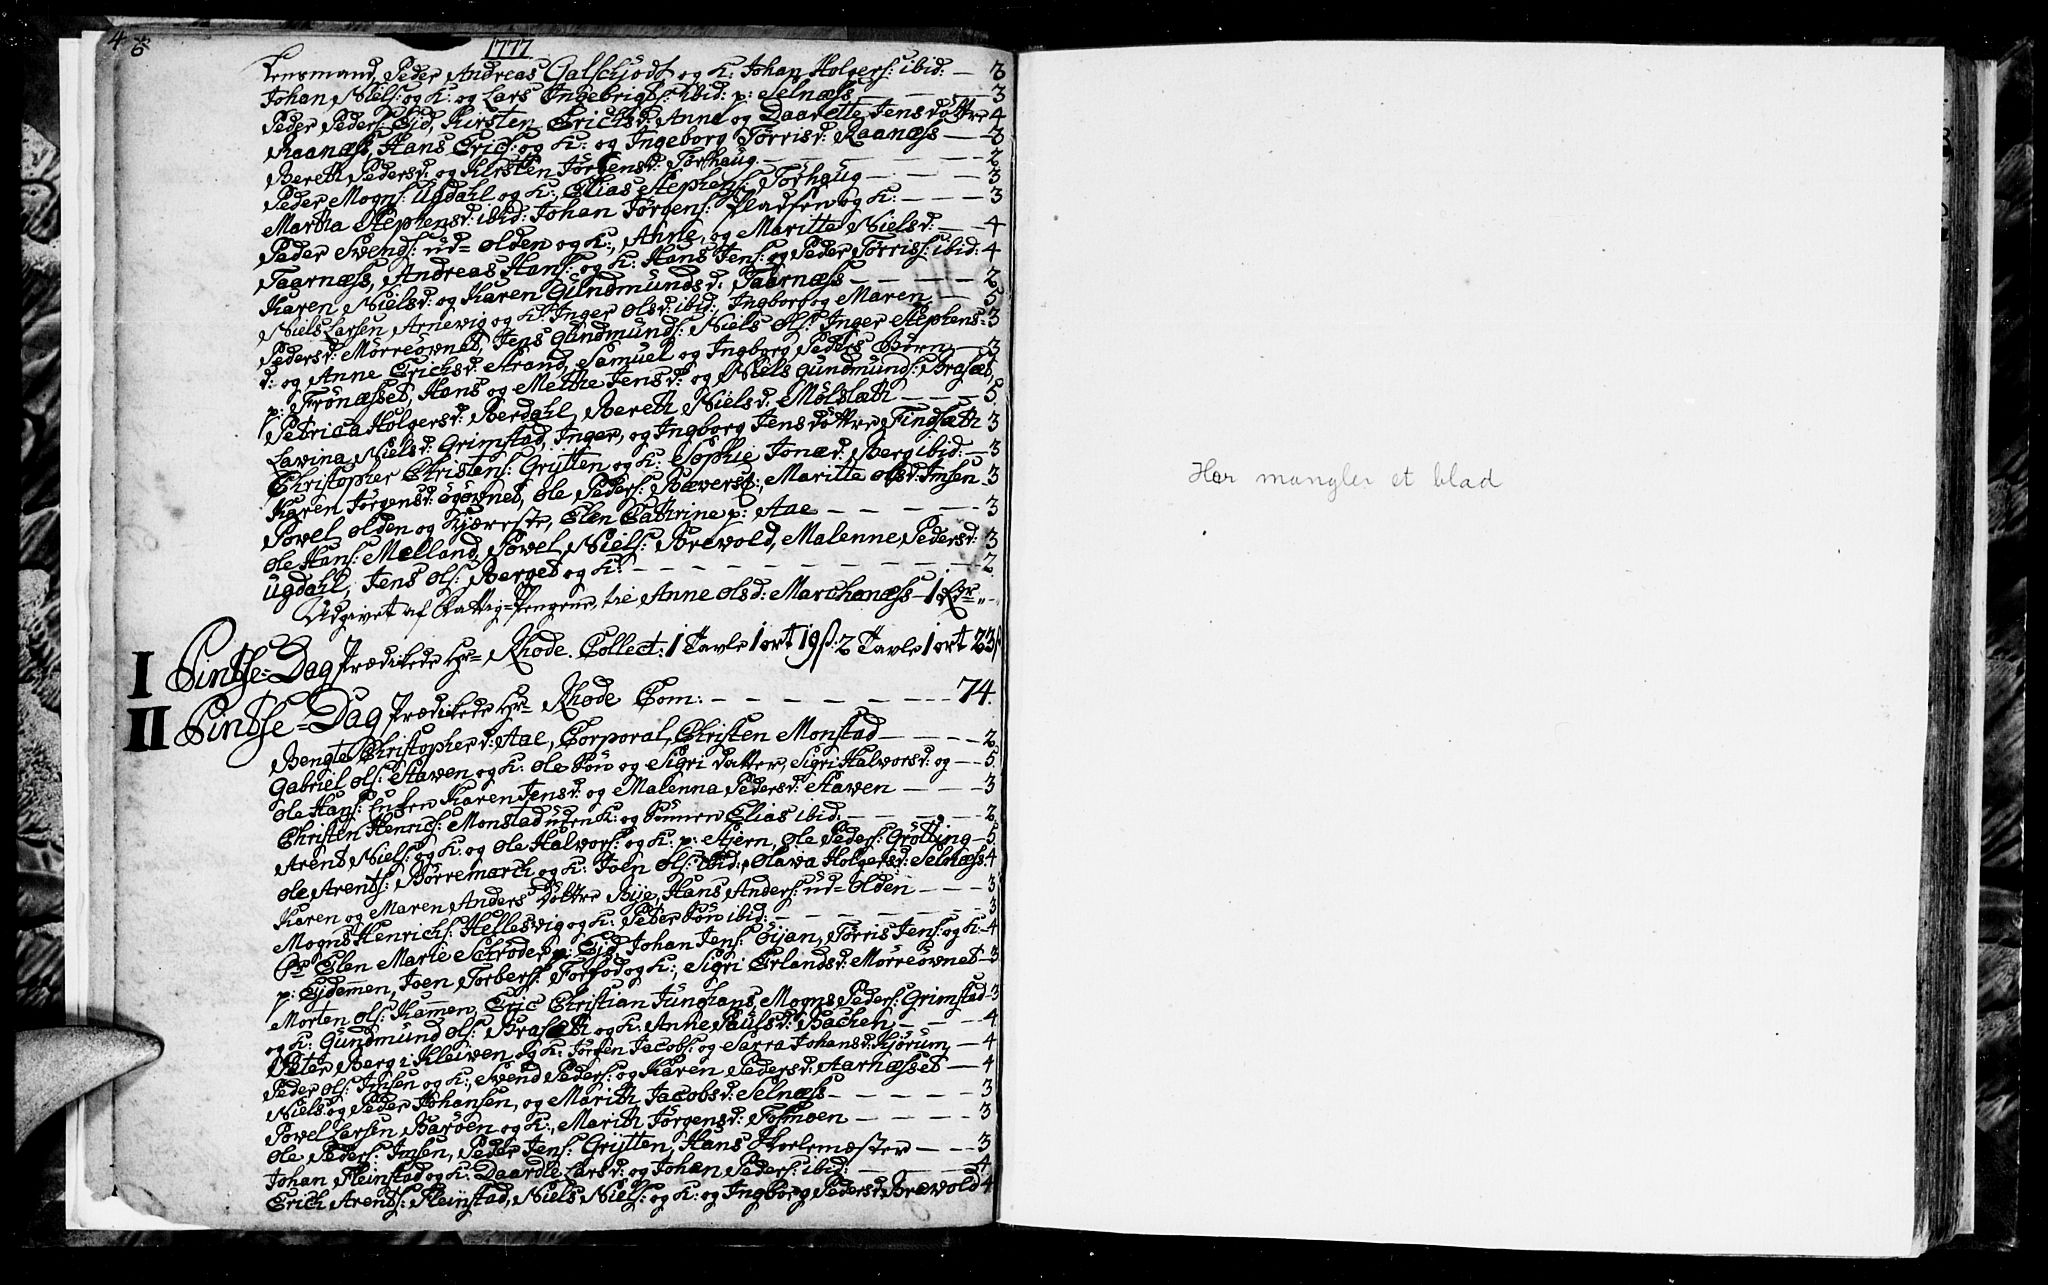 4
1777
Lensmand, Peder Andreas Galschjødt og K: Johan Holgers: ibid: — 3
Johan Niels: og K: og Lars Ingebrigts: ibid: p: Selnæss — 3
Peder Peders: Eid, Kirsten Erichsd: Anne og Daarette Jensdøttre 4
Raanæss, Hans Erics: og K: og Ingeborg Tørrisd: Raanæss — 3
Bereth Pedersd: og Kirsten Jörgensd: Torhaug — 2
Peder Mogns: Ugdahl og K:, Elias Stephens: Torhaug — 3
Martha Stephensd: ibid: Johan Jörgens: Pladsen og K: — 3
Peder Svends: ud=Olden og K:, Anne, og Maritte Nielsd: — 4
Taarnæss, Andreas Hans: og K: Hans Jens: og Peder Tørriss: ibid: 4
Karen Nielsd: og Karen Gundmundsd: Taarnæss — 2
Niels Larsen Arnevig og K: Inger Olsd: ibid: Ingborg og Maren — 5
Pedersd: Mörreövnet, Jens Gundmunds: Niels Ols: Inger Stephens= 3
d: og Anne Erichsd: Strand, Samuel og Ingborg Peders Børn — 3
p: Frönæsset, Hans og Methe Jensd: og Niels Gundmunds: Brasæt,
Petrica Holgersd: Berdahl, Bereth Nielsd: Mölslæth — 5
Lavina Nielsd: Grimstad, Inger, og Ingborg Jensdøttre Findsæth 3
Christopher Christens: Grytten og K: Sophie Jonæd: Berg ibid: — 3
Karen Jørgensd: Ögövnet, Ole Peders: Bæverst:, Maritte Olsd: Imsen 3
Povel Olden og Kjæreste, Elen Cathrine p: Aae — 3
Ole Hans: Melland, Povel Niels: Brevold, Malenne Pedersd: 3
Ugdahl, Jens Ols: Berget og K: — 2
Udgivet af Fattig=Pengene, til Anne Olsd: Marchanæss 1 Rdr „
I Pintse=Dag Prædikede Hr= Rhode. Collect: 1 Tavle 1 ort 19 ß: 2 Tavle 1 ort 23 ß
II Pintse=Dag Prædikede Hr= Rhode Com: — 74.
Bengte Christopherd: Aae, Corporal, Christen Monstad — 2
Gabriel Ols: Staven og K: Ole Søn og Sigri datter, Sigri Halvorsd: og — 5
Ole Hans: Enken Karen Jensd: og Malenna Pedersd: Staven — 3
Christen Henrics: Monstad uden K: og Sønnen Elias ibid: — 2
Arent Niels: og K: og Ole Halvors: og K: p: Stjern, Ole Peders: Grøtting — 5
Ole Arents: Börremarck og K: Joen Ols: ibid:, Olava Holgersd: Selnæss 4
Karen og Maren Anders Døttre Bye, Hans Anders: ud=Olden — 3
Mogns Henrichs: Hellesvig og K: Peder Søn ibid: — 3
Elen Marie Schrøder p: Eid Johan Jens: Öyan, Tørris Jens: og K: 4
p: Eidemen, Joen Torbers: Forfod og K:, Sigri Erlandsd: Mörreövnet — 3
Morten Ols: Kammen, Eric Christian Junghans, Mogns Peders: Grimstad — 3
og K: Gundmund Ols: Brasæth og K: Anne Paulsd: Bachen — 4
Peter Berg i Kleiven, og K: Jørgen Jacobs: og Sarra Johansd: Kjørum — 4
Peder Ols: Imsen og K:, Svend Peders: og Karen Pedersd: Aarnæsset — 4
Niels og Peder Johansen, og Marith Jacobsd: Selnæss — 3
Povel Larsen Barøen og K:, Marith Jørgensd: Fosmoen — 3
Ole Peders: Imsen, Peder Jens: Grytten, Hans Skolemæster — 3
Johan Fleinstad og K: Daardte Larsd: og Johan Peders: ibid: — 4
Erich Arents: Fleinstad, Niels Niels: og K: og Ingborg Pedersd: Brevold 4
Her mangler et blad